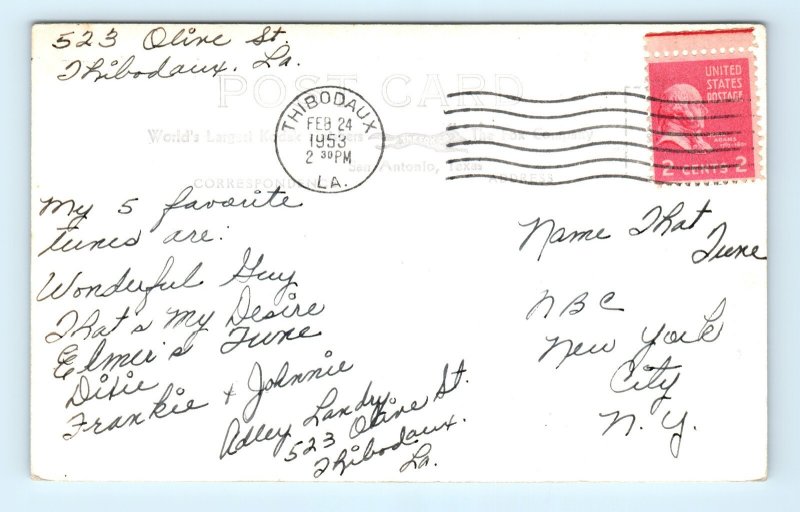 523 Olive St.
Thibodaux, La.
POST CARD
THIBODAUX
FEB 24
1953
2 30 PM
LA.
UNITED
STATES
POSTAGE
ADAMS
2 CENTS 2
World's Largest
The Fox Company
San Antonio, Texas
CORRESPONDENCE
ADDRESS
My 5 favorite
tunes are:
Wonderful Guy
That's My Desire
Elmer's Tune
Dixie
Frankie & Johnnie
Adley Landry
523 Olive St.
Thibodaux.
La.
Name That
Tune
NBC
New York
City
N.Y.